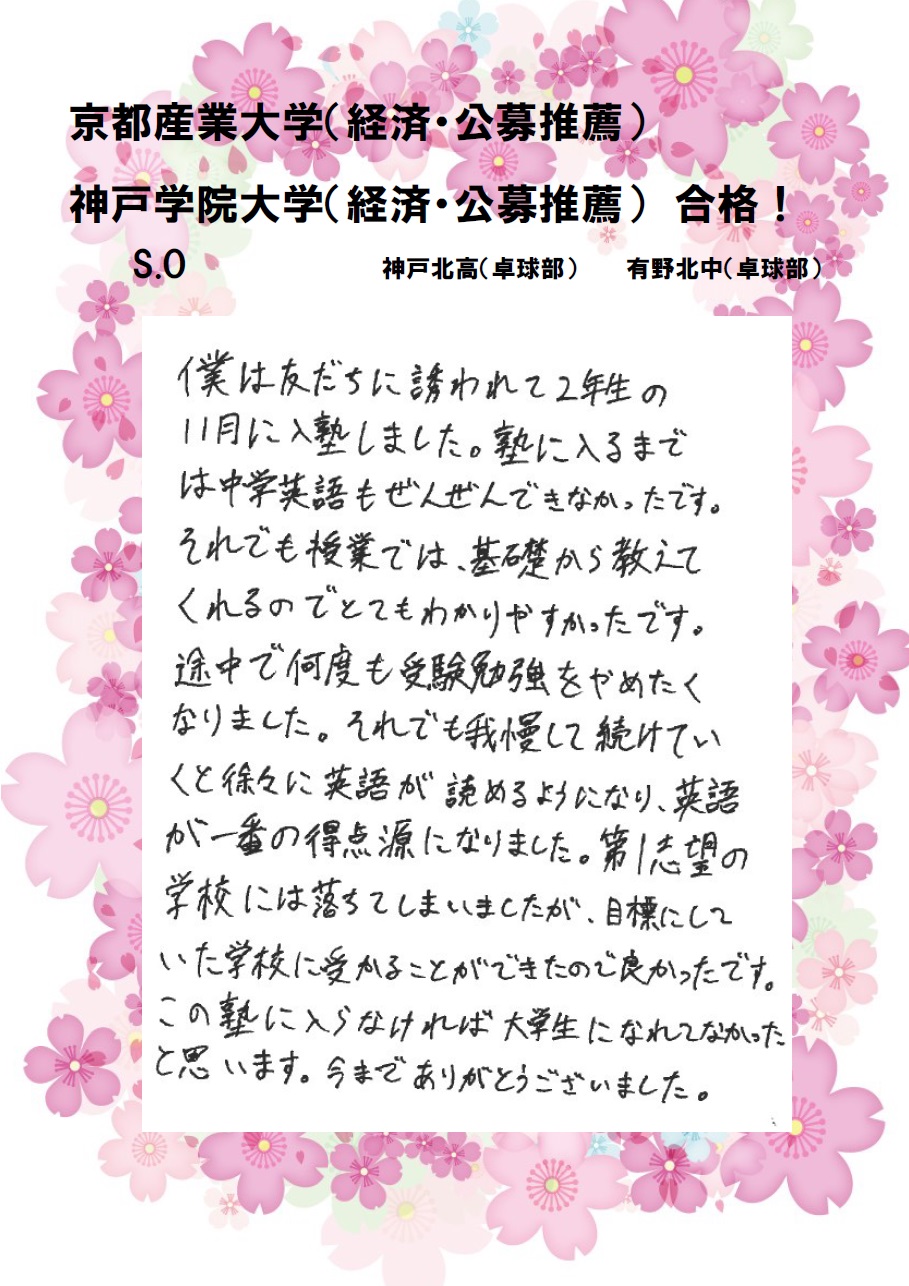 京都産業大学(経済・公募推薦)
神戸学院大学(経済・公募推薦) 合格!
S.O 神戸北高(卓球部) 有野北中(卓球部)
僕は友だちに誘われて2年生の
11月に入塾しました。塾に入るまで
は中学英語もぜんぜんできなかったです。
それでも授業では、基礎から教えて
くれるのでとてもわかりやすかったです。
途中で何度も受験勉強をやめたく
なりました。それでも我慢して続けてい
くと徐々に英語が読めるようになり、英語
が一番の得点源になりました。第1志望の
学校には落ちてしまいましたが、目標にして
いた学校に受かることができたので良かったです。
この塾に入らなければ大学生になれてなかった
と思います。今までありがとうございました。